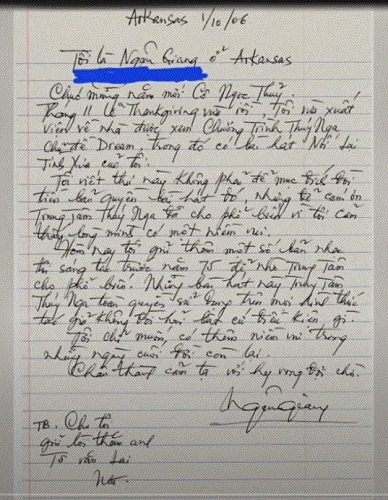 Arkansas 1/10/06
Tôi là Ngân Giang ở Arkansas
Chúc mừng năm mới Cô Ngọc Thuỷ.
Trong lễ Thanksgiving vừa rồi, Tôi vừa xuất
viện về nhà được xem Chương Trình Thuý Nga
Chủ đề Dream, trong đó có bài hát Nối Lại
Tình Xưa của tôi.
Tôi viết thư này không phải để mục đích đòi
tiền bản quyền bài hát đó, nhưng để cám ơn
Trung tâm Thuý Nga đã cho phổ biến vì tôi cảm
thấy lòng mình có một niềm vui.
Hôm nay tôi gửi thêm một số bản nhạc
tôi sáng tác trước năm 75 để nhờ Trung Tâm
cho phổ biến. Những bài hát này Trung Tâm
Thuý Nga toàn quyền sử dụng trên mọi hình thức
tác giả không đòi hỏi bất cứ điều kiện gì.
Tôi chỉ muốn có thêm niềm vui trong
những ngày cuối đời còn lại.
Chân thành cảm tạ với hy vọng đợi chờ.
Ngân Giang
TB. Cho tôi
gửi lời thăm anh
Tô văn Lai